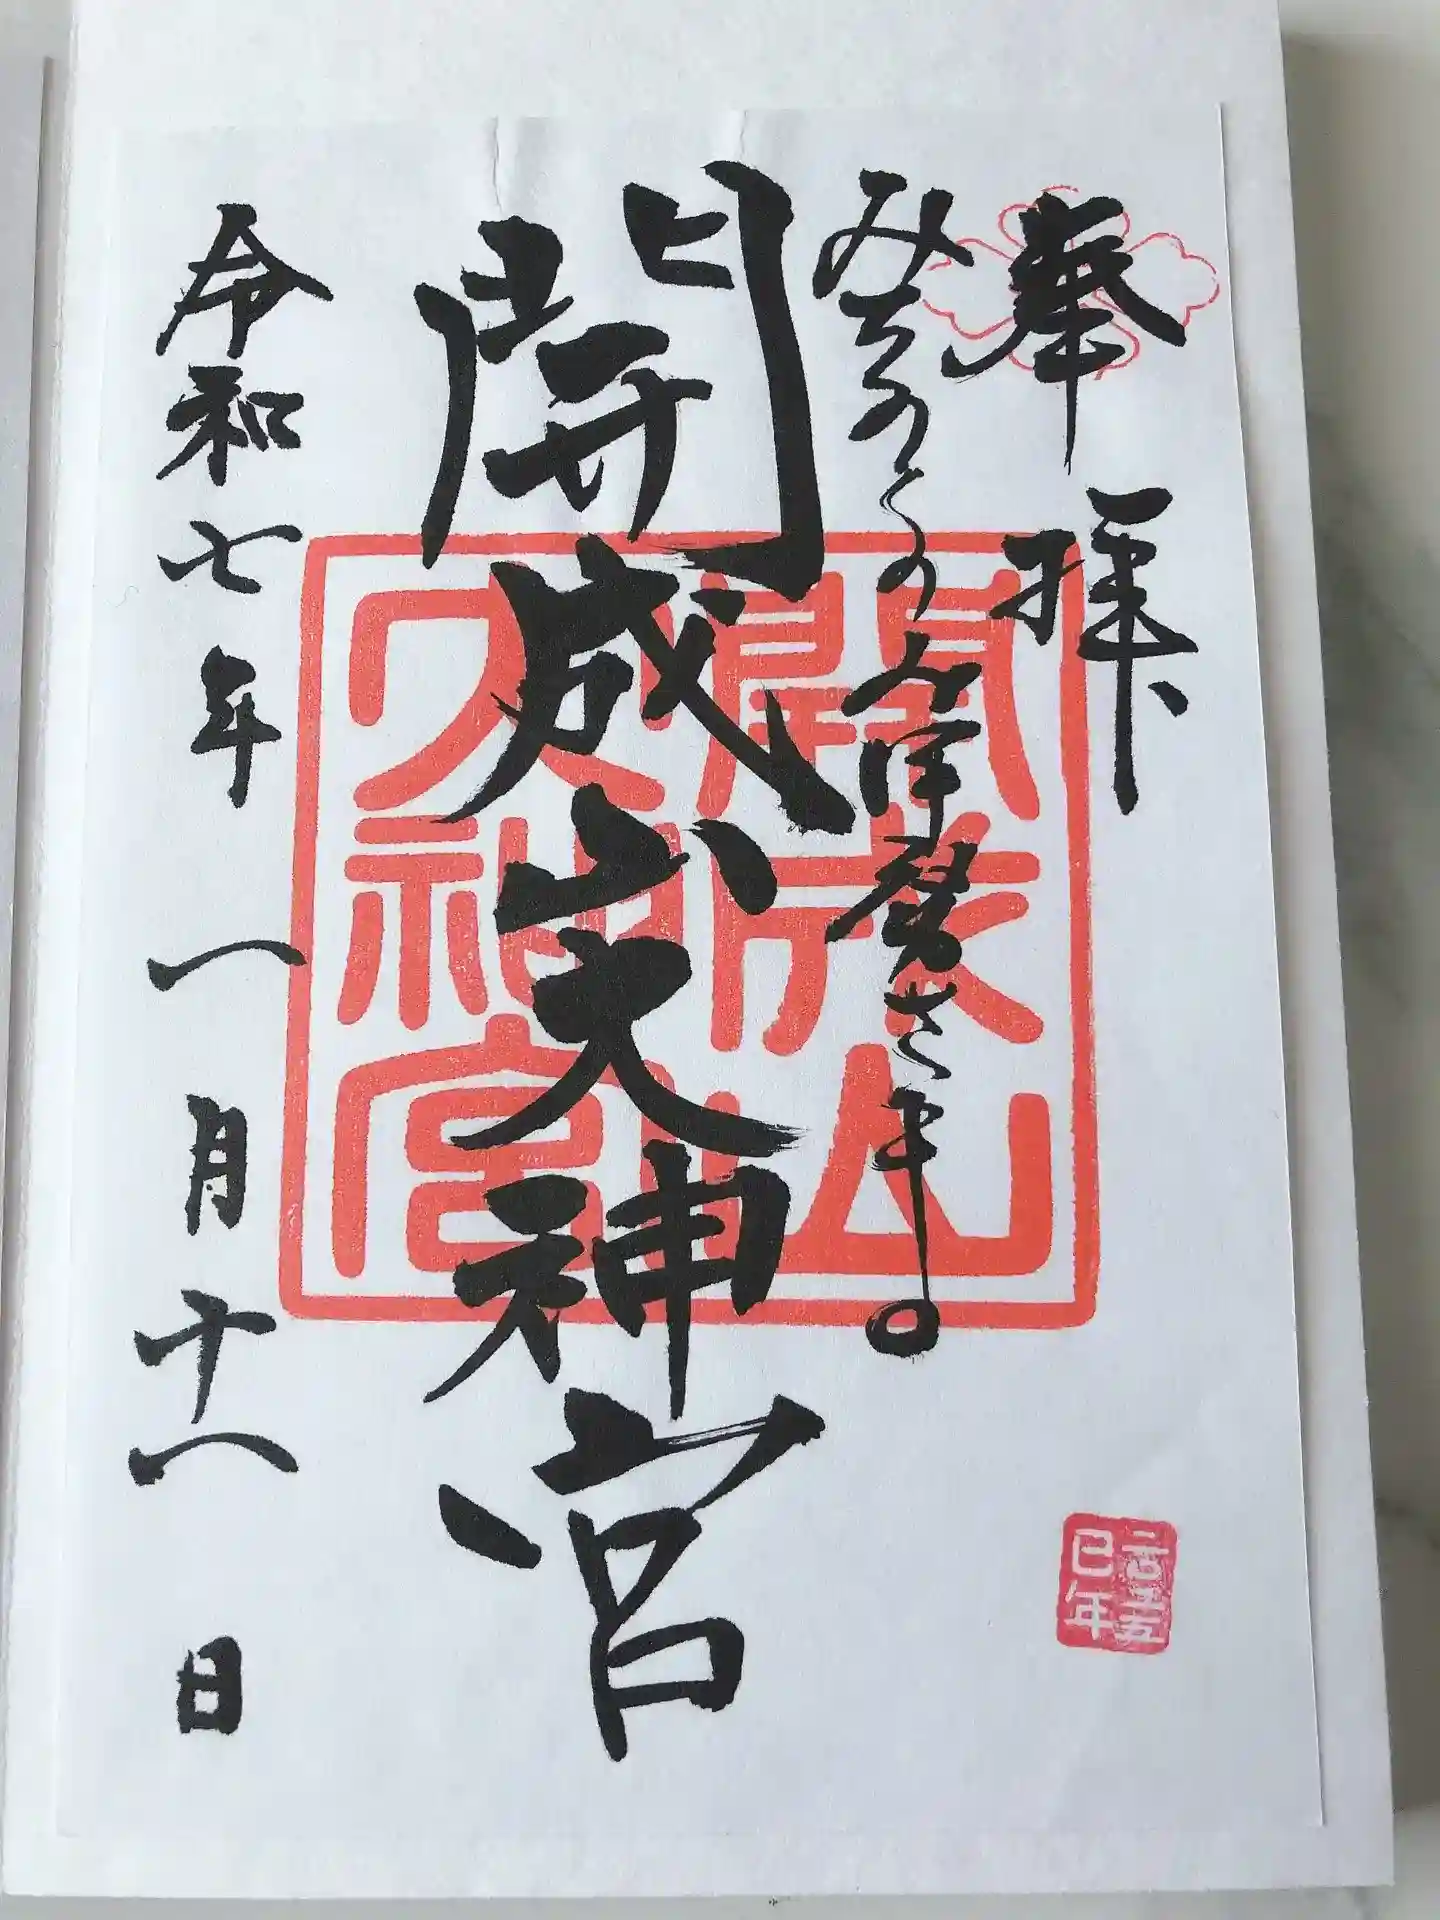 奉拝
みちのくのお伊勢さま。
開成山大神宮
令和七年一月十一日
開成山
大神宮
二〇二五
巳年